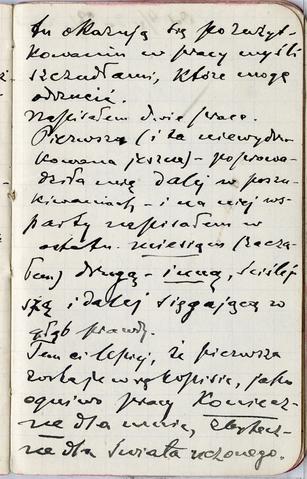 tu okazują się pozużyt-
kowaniu w pracy myśli
szczudłami, które mogę
odrzucić.
Napisałem dwie prace.
Pierwsza (i ta niewydru-
kowana jeszcze) - poprowa-
dziła mię dalej w poszu-
kiwaniach, - i na niej ws-
party napisałem w
ostatn. miesiącu (zaczą-
łem) drugą - inną, ściślej-
szą i dalej sięgającą w
głąb prawdy.
Tem ci lepiej, że pierwsza
zostaje w rękopisie, jako
ogniwo pracy Koniecz-
ne dla mnie, zbytecz-
ne dla świata uczonego.